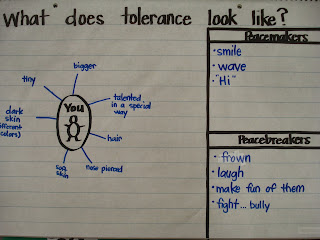 What "does tolerance look" like?
bigger
tiny
talented
in a special
way
dark
skin
(different
colors)
You
hair
nose pierced
soft
skin
Peacemakers
• smile
• wave
• "Hi"
Peacebreakers
• frown
• laugh
• make fun of them
• fight... bully